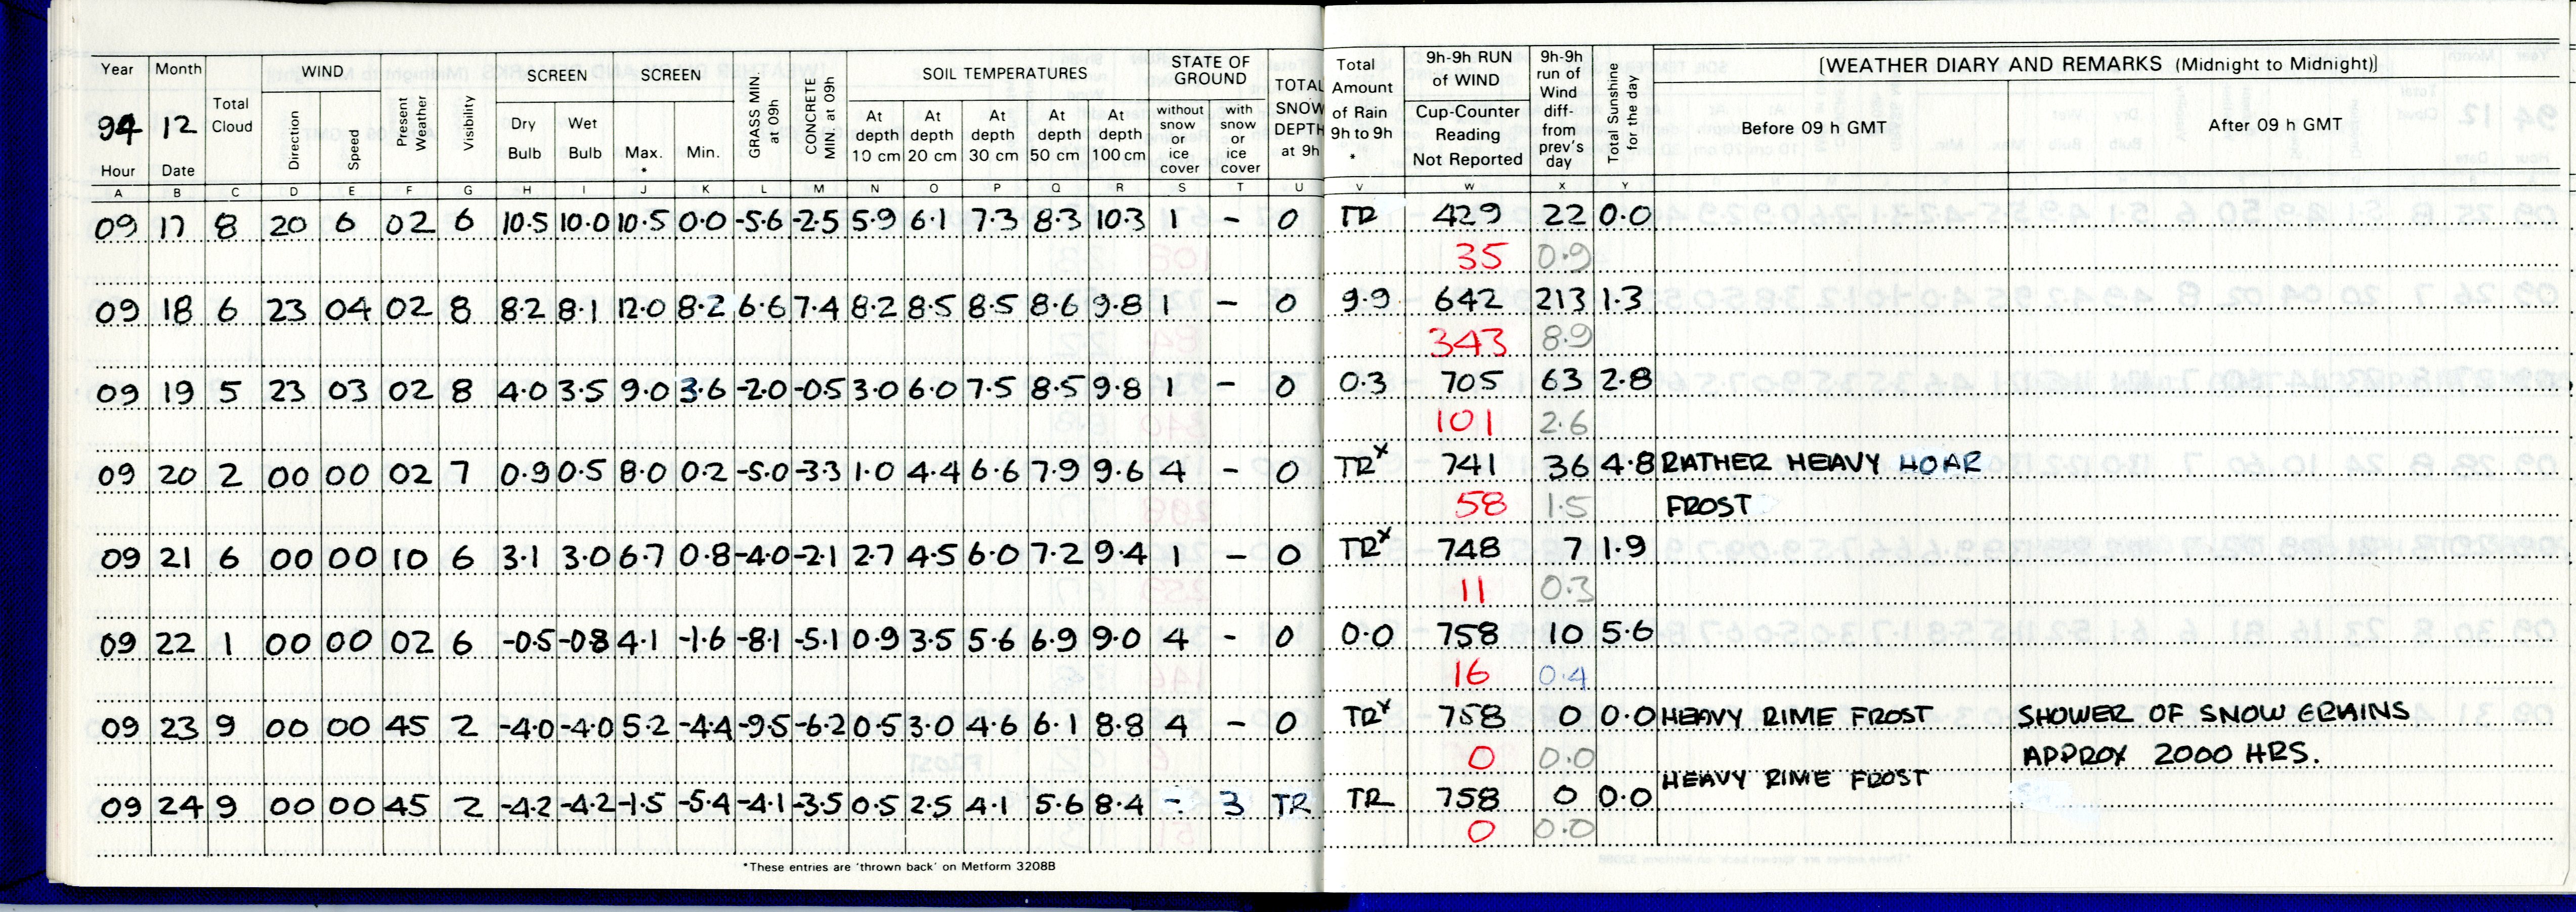 Year Month WIND SCREEN SCREEN SOIL TEMPERATURES STATE OF GROUND TOTAL SNOW DEPTH at 9h Total Amount of Rain 9h to 9h * 9h-9h RUN of WIND 9h-9h run of Wind diff- from prev's day Total Sunshine for the day [WEATHER DIARY AND REMARKS (Midnight to Midnight)]
94 12 Total Cloud Direction Speed Present Weather Visibility Dry Bulb Wet Bulb Max. * Min. GRASS MIN at 09h CONCRETE MIN at 09h At depth 10 cm At depth 20 cm At depth 30 cm At depth 50 cm At depth 100 cm without snow or ice cover with snow or ice cover Cup-Counter Reading Not Reported Before 09 h GMT After 09 h GMT
Hour Date
A B C D E F G H I J K L M N O P Q R S T U V W X Y
09 17 8 20 6 02 6 10.5 10.0 10.5 0.0 -5.6 -2.5 5.9 6.1 7.3 8.3 10.3 1 - 0 TR 429 22 0.0
35 0.9
09 18 6 23 04 02 8 8.2 8.1 12.0 8.2 6.6 7.4 8.2 8.5 8.5 8.6 9.8 1 - 0 9.9 642 213 1.3
343 8.9
09 19 5 23 03 02 8 4.0 3.5 9.0 3.6 -2.0 -0.5 3.0 6.0 7.5 8.5 9.8 1 - 0 0.3 705 63 2.8
101 2.6
09 20 2 00 00 02 7 0.9 0.5 8.0 0.2 -5.0 -3.3 1.0 4.4 6.6 7.9 9.6 4 - 0 TRx 741 36 4.8 RATHER HEAVY HOAR
58 1.5 FROST
09 21 6 00 00 10 6 3.1 3.0 6.7 0.8 -4.0 -2.1 2.7 4.5 6.0 7.2 9.4 1 - 0 TRx 748 7 1.9
11 0.3
09 22 1 00 00 02 6 -0.5 -0.8 4.1 -1.6 -8.1 -5.1 0.9 3.5 5.6 6.9 9.0 4 - 0 0.0 758 10 5.6
16 0.4
09 23 9 00 00 45 2 -4.0 -4.0 5.2 -4.4 -9.5 -6.2 0.5 3.0 4.6 6.1 8.8 4 - 0 TRx 758 0 0.0 HEAVY RIME FROST SHOWER OF SNOW GRAINS
0 0.0 APPROX 2000 HRS.
09 24 9 00 00 45 2 -4.2 -4.2 -1.5 -5.4 -4.1 -3.5 0.5 2.5 4.1 5.6 8.4 - 3 TR TR 758 0 0.0 HEAVY RIME FROST
0 0.0
*These entries are 'thrown back' on Metform 3208B